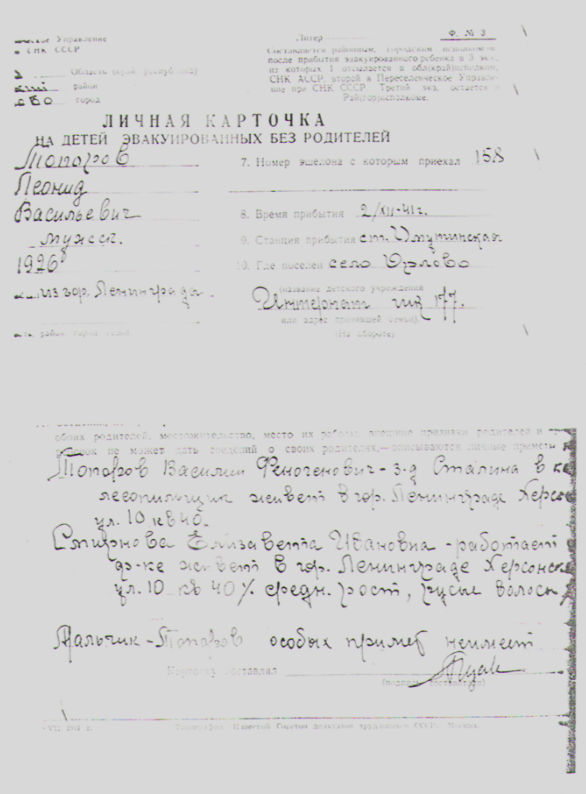 Управление
СНК СССР
Литер
Ф. № 3
Составляется районным, городским исполкомом
после прибытия эвакуированного ребенка в 3 экз.
из которых 1 отсылается в облкрайисполком,
СНК АССР, второй в Переселенческое Управле-
ние при СНК СССР. Третий экз. остается в
Райгорисполкоме.
Область (край республика)
район
город
ЛИЧНАЯ КАРТОЧКА
НА ДЕТЕЙ ЭВАКУИРОВАННЫХ БЕЗ РОДИТЕЛЕЙ
Топоров
Леонид
Васильевич
мужск.
1926
из гор. Ленинграда
7. Номер эшелона с которым приехал 158
8. Время прибытия 2/XII-41г.
9. Станция прибытия ст. Омутинская
10. Где поселен село Юрлово
(название детского учреждения
Интернат 177.
или адрес принявшей семьи)
(На обороте)
обоих родителей, местожительство, место их работы, внешние признаки родителей и
не может дать сведений о своих родителях,—описываются личные приметы
Топоров Василий Феногенович - з-д Сталина в
лесопильщик живет в гор. Ленинграде Херсо
ул. 10 кв 40.
Смирнова Елизавета Ивановна - работает
живет в гор. Ленинграде Херсонс
ул. 10 кв 40 средн. рост, русые волосы
Мальчик - Топоров особых примет неимеет
Карточку составил